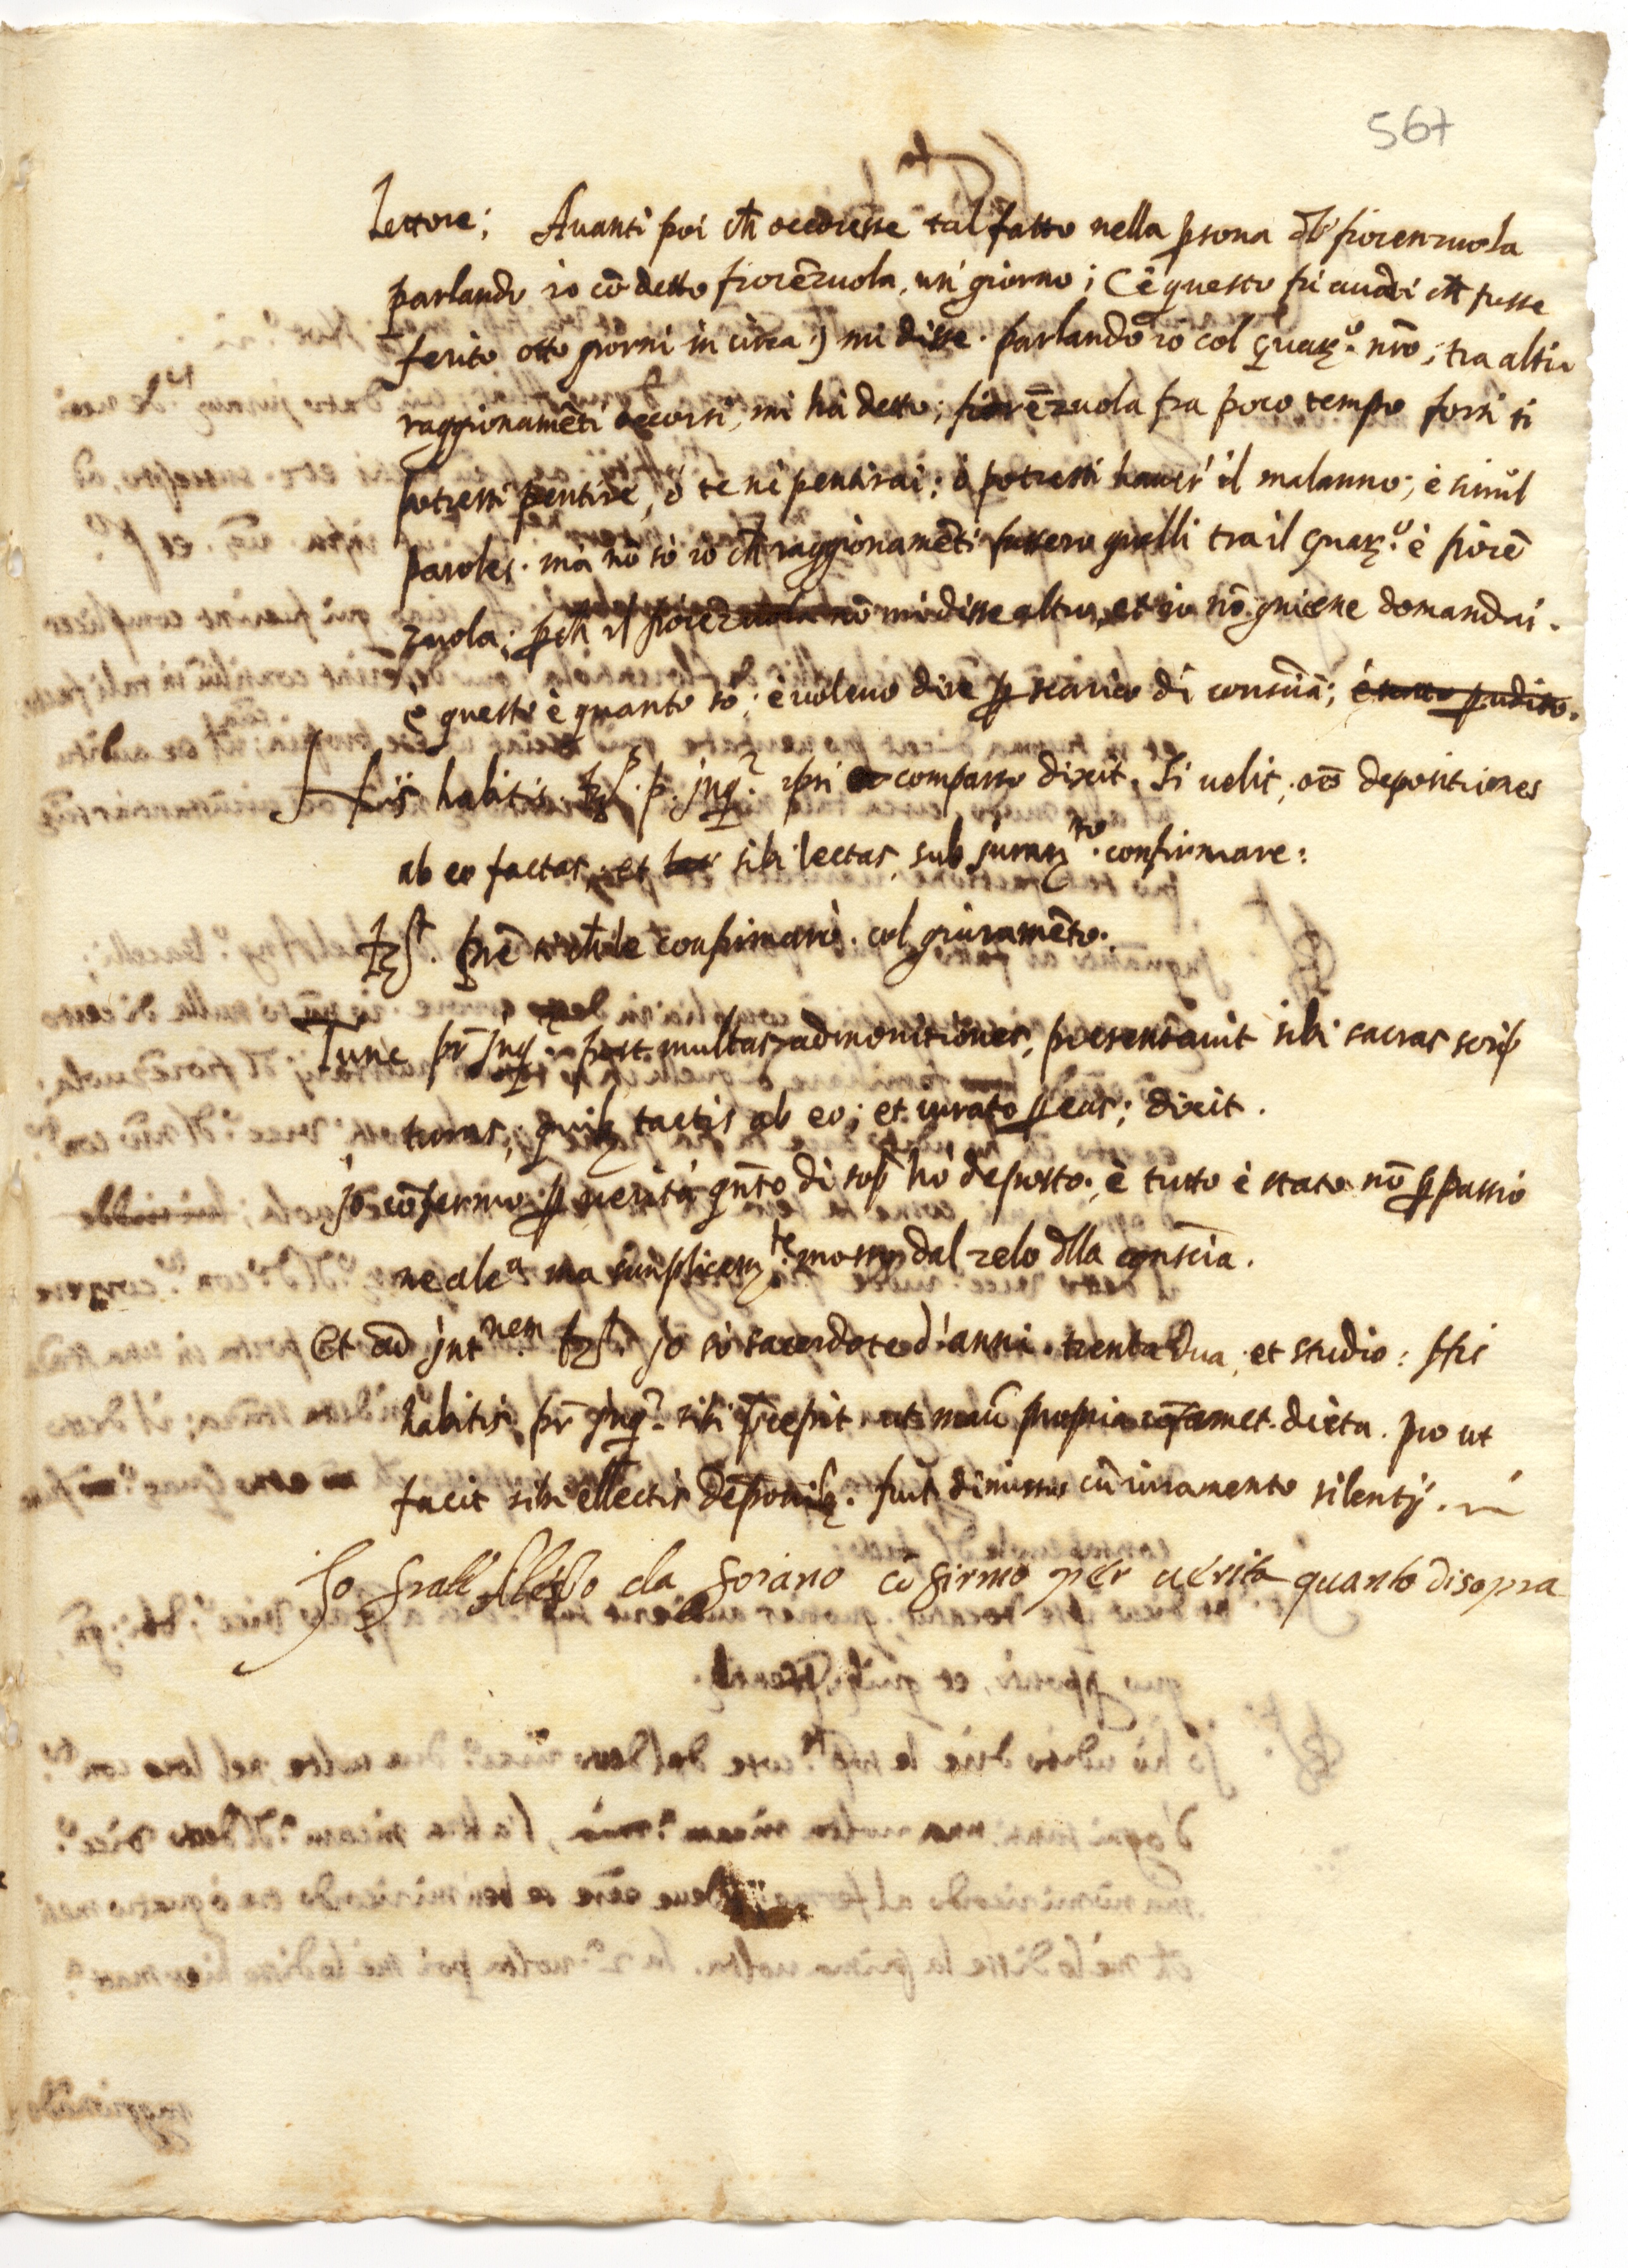 567
Lettore; Auanti poi ch̄ occoresse tal fatto nella ꝑsona di fiorenzuola
parlando io cō detto fiorēzuola, un' giorno; (é questo fú auāti ch̄ fusse
ferito otto giorni in circa) mi disse. parlando io col Guar.º nrō, tra altri
raggionamēti occorsi, mi há detto; fiorēzuola fra poco tempo forsi ti
potressi pentire, ó te ne pentirai; ó potressi hauer' il malanno; é simil
parole; má nō só io ch̄ raggionamēti fussero quelli tra il Guar.º é fiorē
zuola; ꝑch̄ il fiorēzuola nō mi disse altro, et io nō gniene domandai.
é questo é quanto só; é uoleuo dire ꝑ scarico di consciā; é tutto ꝑ udito.
Hijs habitis. p. jnq. ipsi comparso dixit, si uelit, oēs depositiones
ab eo factas, et sibi lectas, sub juram.to confirmare:
R̄st. prē si ch̄ le confirmaró col giuramēto.
Tunc pr̄ jnq.r post multas admonitiones, presentauit sibi sacras scrip
turas, quibꝫ tactis ab eo; et iurato ꝑ eas; dixit.
jo cōfermo ꝑ ueritá qn̄to di sop̄ hó deposto. é tutto é stato nō ꝑ passio
ne alc.a ma simplicem.te mosso dal zelo dlla conscīa.
Et ad jnt.nem R̄st. jo só sacerdote d'anni trentadua, et studio: His
habitis pr̄ jnq.r sibi p̄cepit ut manū propria cōfirmet dicta. pro ut
facit sibi ellectis deponibꝫ. fuit dimissus cū iuramento silentij.
Jo frate Aless.o da Soriano cō firmo per uerita quanto disopra